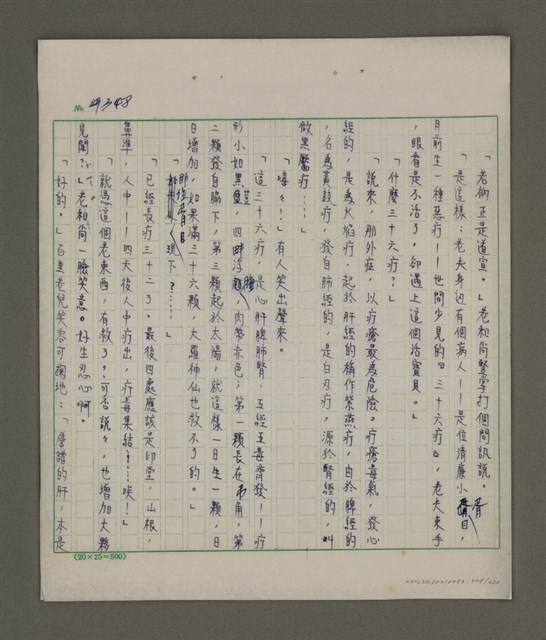 № 4348
「老衲正是道宣。」老和尚豎掌打個問訊說。
「是這樣：老夫身边有個病人——是位清廉小胥目，
月前生一種惡疔——世間少見的『三十六疔』，老夫束手
，眼看是不活了，卻遇上這個活寶貝。」
「什麼三十六疔？」
「說來，那外症，以疔瘡最為危險。疔瘡毒氣，發心
經的，是為火焰疔，起於肝經的稱作紫燕疔，由於脾經的
，名為黃鼓疔，發自肺經的，是白刃疔，源於腎經的，叫
做黑靨疔……」
「嘻々！」有人笑出聲來。
「這三十六疔，是心肝脾肺腎，五經五毒齊發——疔
形小如黑豆，四畔浮腫，肉帶赤色；第一顆長在 角，第
二顆發自脇下，第三顆起於太陽，就這樣一日生一顆，日
日增加，如果滿三十六顆，大羅神仙也救不了的。」
「那位胥目，現下？……」
「已經長疔三十二了。最後四處應該是印堂，山根，
鼻準，人中——四天後人中疔出，疔毒集結……唉！」
「就憑這個老東西，有救了。可否說々，也增加大夥
見聞？」老和尚一臉笑意。好生忍心啊。
「好的。」百里老兒笑容可掬地：「 蟾的肝，本是
(20×25=500)